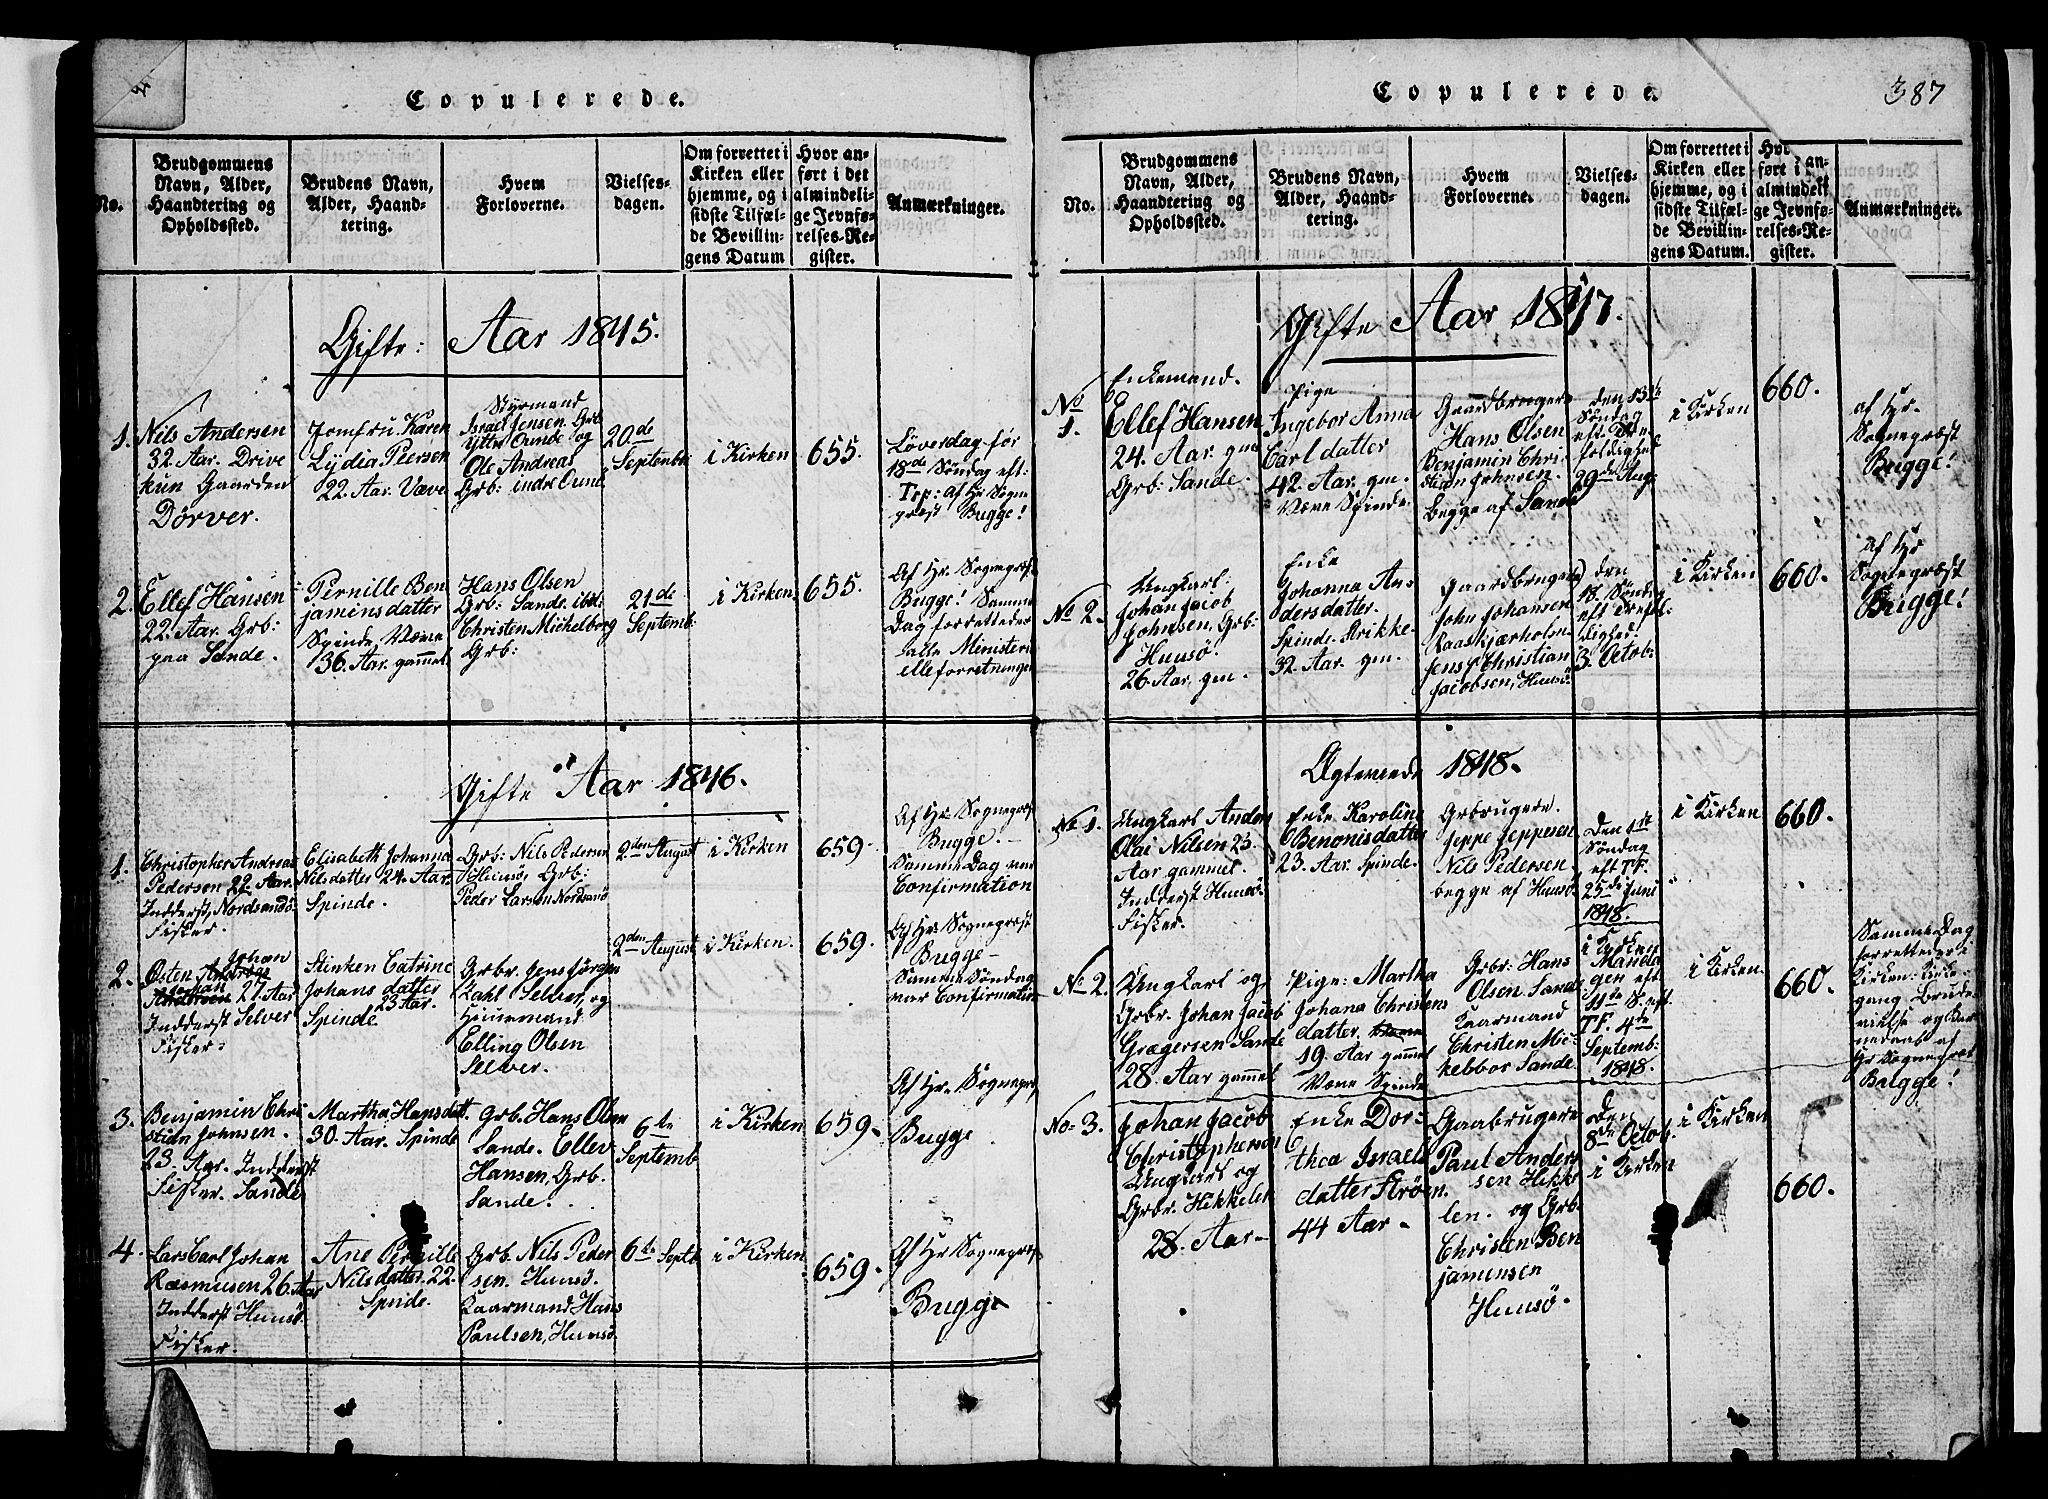 Copulerede.
No.
Brudgommens
Navn, Alder,
Haandtering og
Opholdssted.
Brudens Navn,
Alder, Haand-
tering.
Hvem
Forloverne.
Vielses-
dagen.
Om forrettet i
Kirken eller
hjemme, og i
sidste Tilfæl-
de Bevillin-
gens Datum
Hvor an-
ført i det
almindeli-
ge Jevnfø-
relses-Re-
gister.
Anmærkninger.
Gifte: Aar 1845.
1.
Nils Andersen
32. Aar. Drive
Gaarden
Dörver.
Jomfru Karen
Lÿdia Peersen
22. Aar. Væve
Styrmand
Israel Jensen. Grb
Ytter Qunde og
Ole Andreas
Grb: indre Qund
20de
Septemb:
i Kirken
655.
Löverdag för
18de Söndag eft.
Trp: af Hr Sogne
præst Bugge!
2.
Ellef Hansen
22. Aar. Grb:
paa Sande.
Pernille Ben
jaminsdatter
Spinde. Væve
36. Aar. gammel.
Hans Olsen
Grb: Sande. ibid:
Christen Michelborg
Grb:
21de
Septemb:
i Kirken.
655.
Af Hr. Sognepræst
Bugge! Samme
Dag forrettedes
alle Ministeri
elleforretninger
Gifte Aar 1846.
1.
Christopher Andreas
Pedersen 22. Aar.
Indderst, Nordsandö
Fisker.
Elisabeth Johanna
Nilsdatter 24. Aar.
Spinde.
Grb: Nils Pedersen
Huusö, Grb:
Peder Larsen Nordsandö
2den August
i Kirken
659.
Af Hr. Sognepræst
Bugge.
Samme Dag var
Confirmation
2.
Østen Johan
Johan
Andersen 27. Aar
Indderst Selver
Fisker.
Stinken Catrine
Johans datter
23 Aar.
Spinde
Grbr. Jens Jörgen
Zahl Selver, og
Huusmand
Elling Olsen
Selver.
2den August
i Kirken.
659.
Af Hr. Sognepræst
Bugge
Samme Söndag
var Confirmation
3.
Benjamin Chri
stian Johnsen.
23. Aar. Indderst
Fisker. Sande
Martha Hansdatt.
30. Aar. Spinde
Grb. Hans Olsen
Sande. Ellev
Hansen, Grb.
Sande.
6te
Septemb
i Kirken
659.
Af Hr. Sognepræst
Bugge
4.
Lars Carl Johan
Rasmusen 26. Aar
Indderst Huusö.
Fisker.
Ane Pernille
Nilsdatter. 22.
Spinde.
Grb. Nils Peder
sen. Huusö.
Kaarmand Hans
Paulsen, Huusö
6te Septb
i Kirken
659.
Af Hr Sognepræst
Bugge
Copulerede.
387
No.
Brudgommens
Navn, Alder,
Haandtering og
Opholdssted.
Brudens Navn,
Alder, Haand-
tering.
Hvem
Forloverne.
Vielses-
dagen.
Om forrettet i
Kirken eller
hjemme, og i
sidste Tilfæl-
de Bevillin-
gens Datum.
ført i an-
almindeli
ge Jevnfø-
relses-Re-
gister.
Anmærkninger.
Gifte Aar 1847.
No
1.
Enkemand.
Ellef Hansen
24. Aar. gm
Grb: Sande.
Pige
Ingebor Anna
Carldatter
42. Aar. gm.
Væve Spinde.
Gaardbrugere
Hans Olsen
Benjamin Chri-
stian Johnsen.
begge af Sande
den 13de
Söndag
eft. Tre-
foldighed
29de Aug
i Kirken
660.
af Hr.
Sognepræst
Bugge!
No 2.
Ungkarl:
Johan Jacob
Johnsen, Grb:
Huusö.
26 Aar. gm.
Enke
Johanna An-
dersdatter.
Spinde. Strikke.
32. Aar. gm.
Gaardbrugere
John Johansen
Raaskjærholm
Jens Christian
Jacobsen, Huusö
den
18. Söndag
eft Trefol-
dighed!
3. Octob:
i Kirken
660.
af Hr
Sognepræst
Bugge!
Ægteviede 1848.
No 1.
Ungkarl Anders
Olai Nilsen 23.
Aar gammel.
Indderst Huusö
Fisker.
Enke Karoline
Benonisdatter
23. Aar. Spinde.
Grbrugere.
Jeppe Jeppesen
Nils Pedersen.
begge af Huusö
Den 1ste
Söndag
eft TF.
25de Juni
1848.
i Kirken
660.
No 2.
Ungkarl og
Grbr. Johan Jacob
Grægersen Sande
28. Aar gammel
Pige. Martha
Johana Christens
datter.
19. Aar gammel
Væve Spinde
Grbr: Hans
Olsen Sande
Kaarmand
Christen Mic-
kebbor Sande
i Kirken
Manda
gen eft
11te S. eft.
TF. 4te
Septemb:
1848.
i Kirken.
660.
Samme Dag
forrettedes i
Kirken: Kirke-
gang Brude
vielse og
af
Hr Sognepræst
Bugge!
No 3.
Johan Jacob
Christophersen
Ungkarl og
Grbr. Hekkelen
28. Aar
Enke Dor-
thea Israels
datter Ström.
44 Aar
Gaabrugere
Paul Anders
sen Hekke
len. og Grb.
Christen Ben
jamensen
Huusö.
Den
8de Octob.
i Kirken
i Kirken
660.